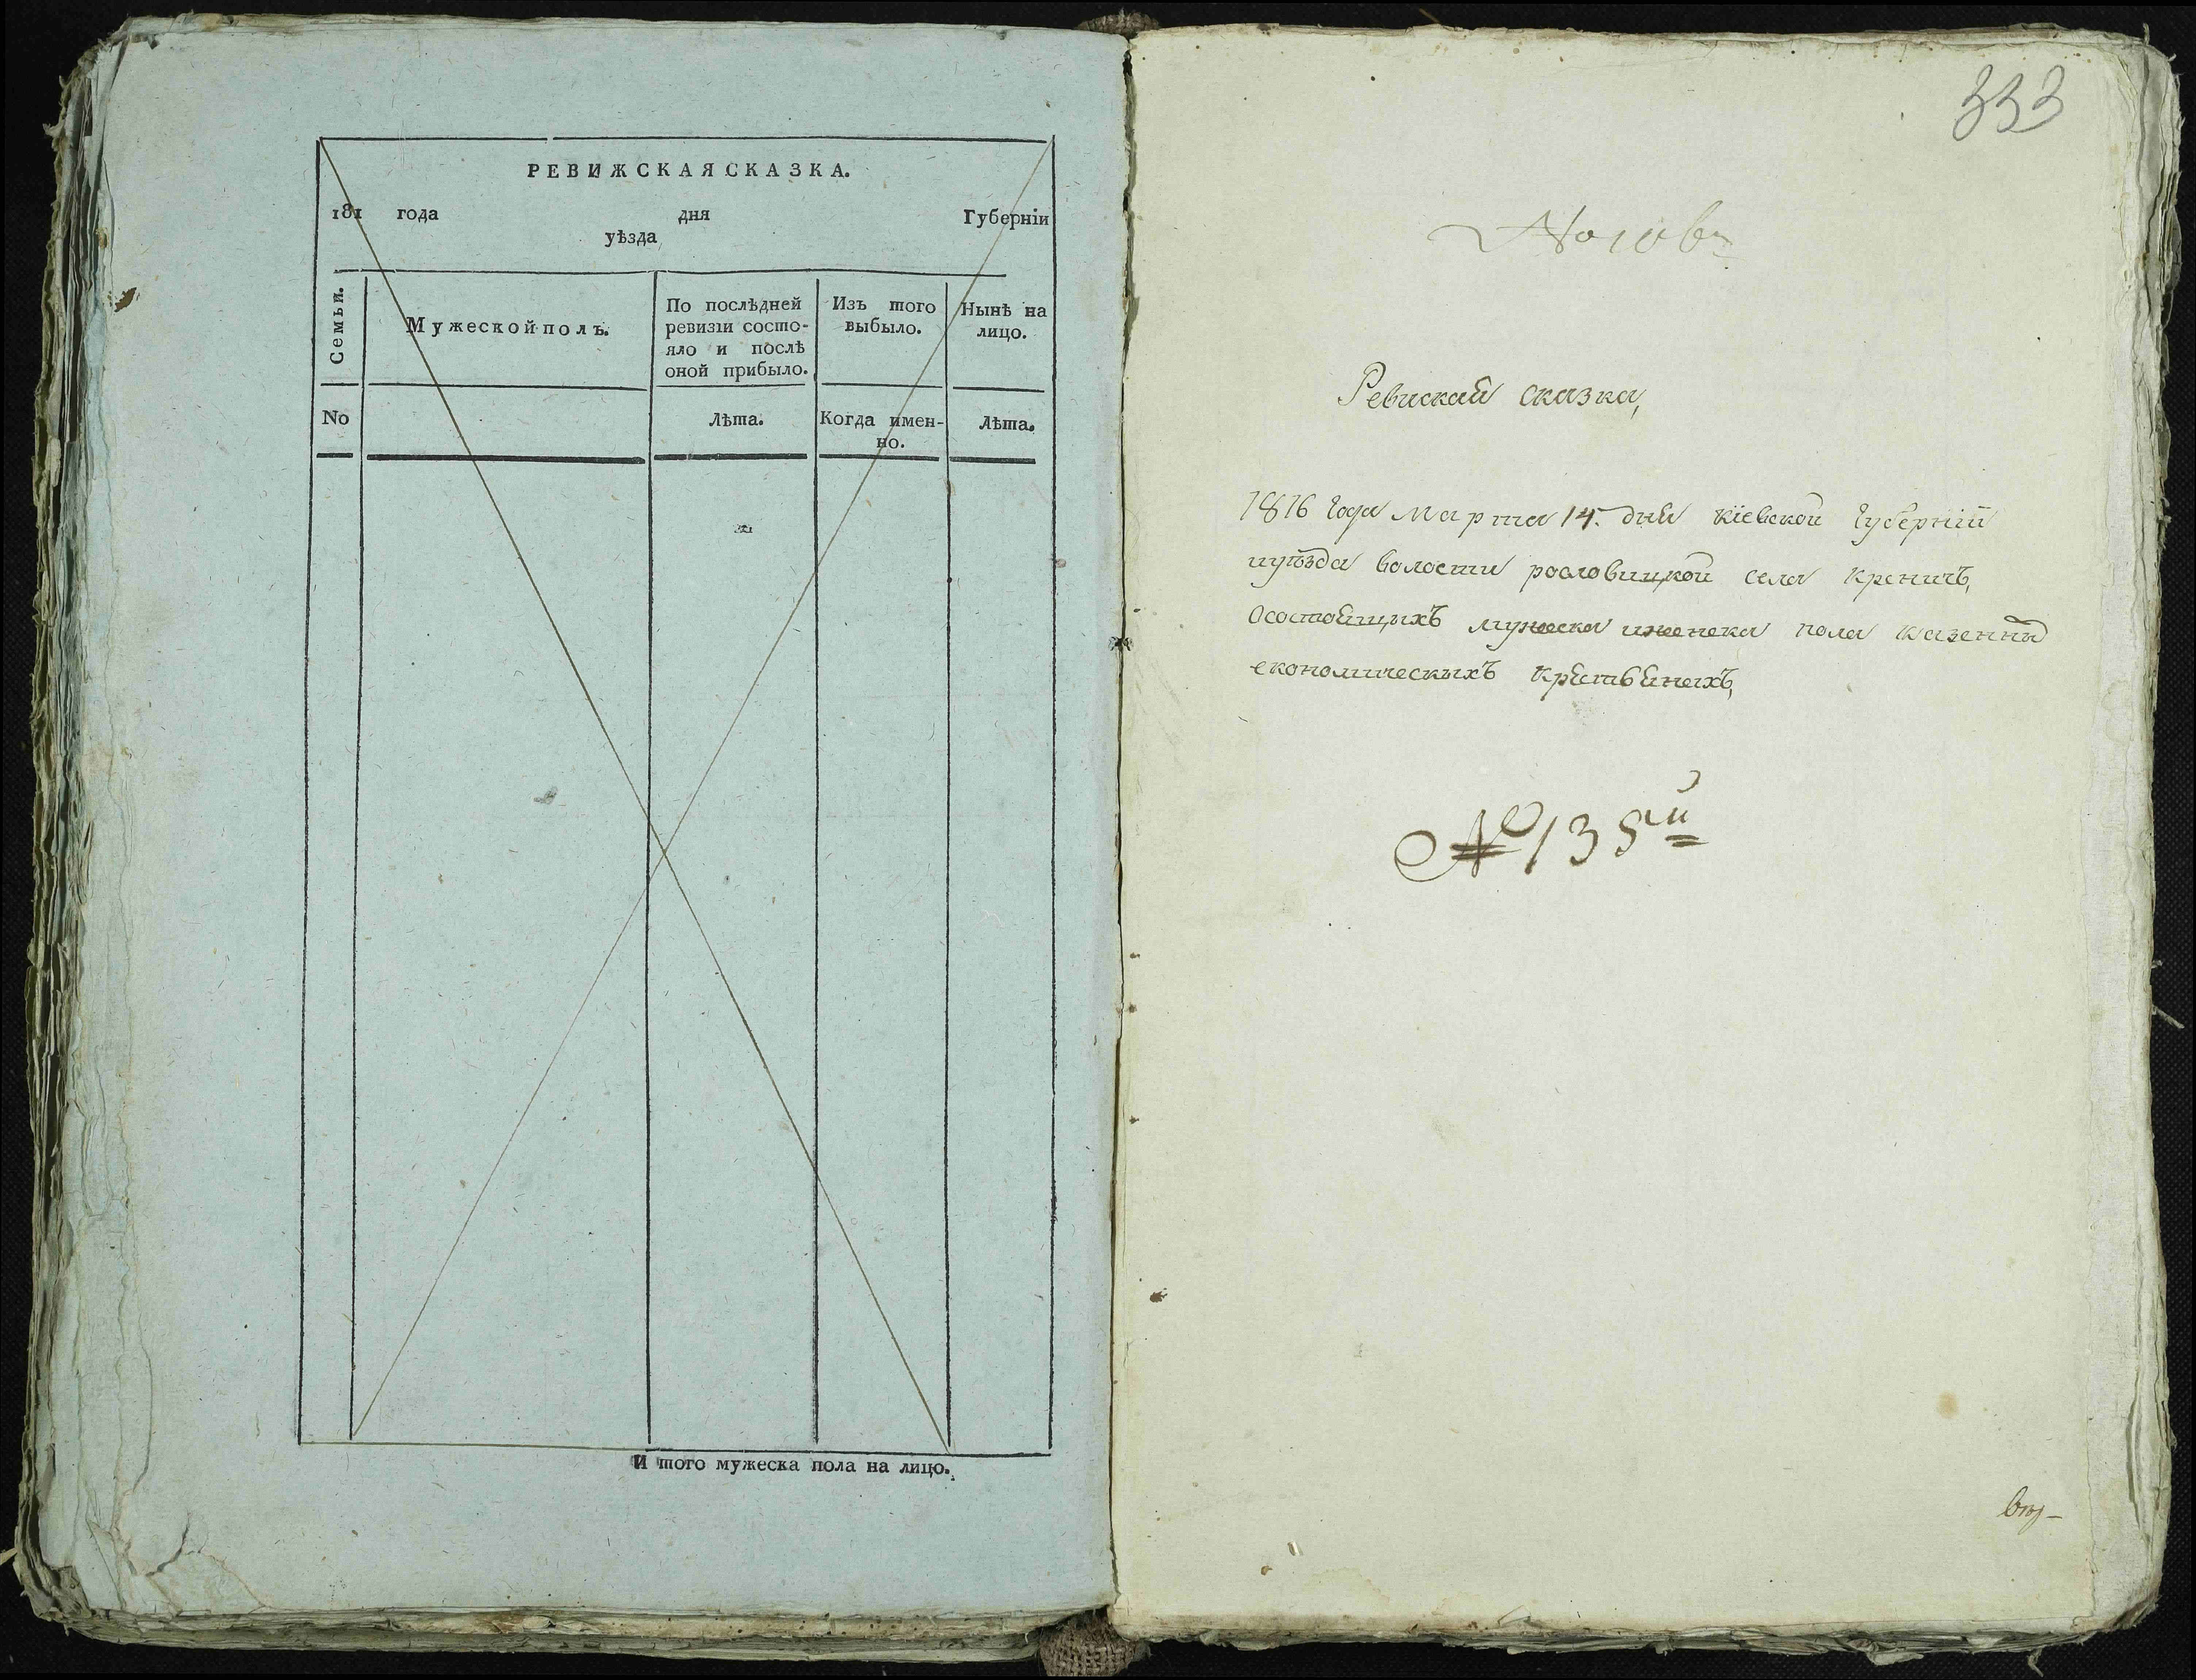 РЕВИЖСКАЯ СКАЗКА.
181 года дня Губерніи
уѣзда
Семьи.
Мужеской полъ.
По послѣдней ревизіи состо-
яло и послѣ
оной прибыло.
Изъ того
выбыло.
Нынѣ на
лицо.
No
Лѣта.
Когда имен-
но.
Лѣта.
И того мужеска пола на лицо.
333
Ревиская сказка,
1816 года марта 14. дня кіевской губерніи
иуѣзда волости рословицкой села креничъ,
осостоящихъ мужеска иженска пола казенны
економическихъ крстьянехъ,
№ 135й